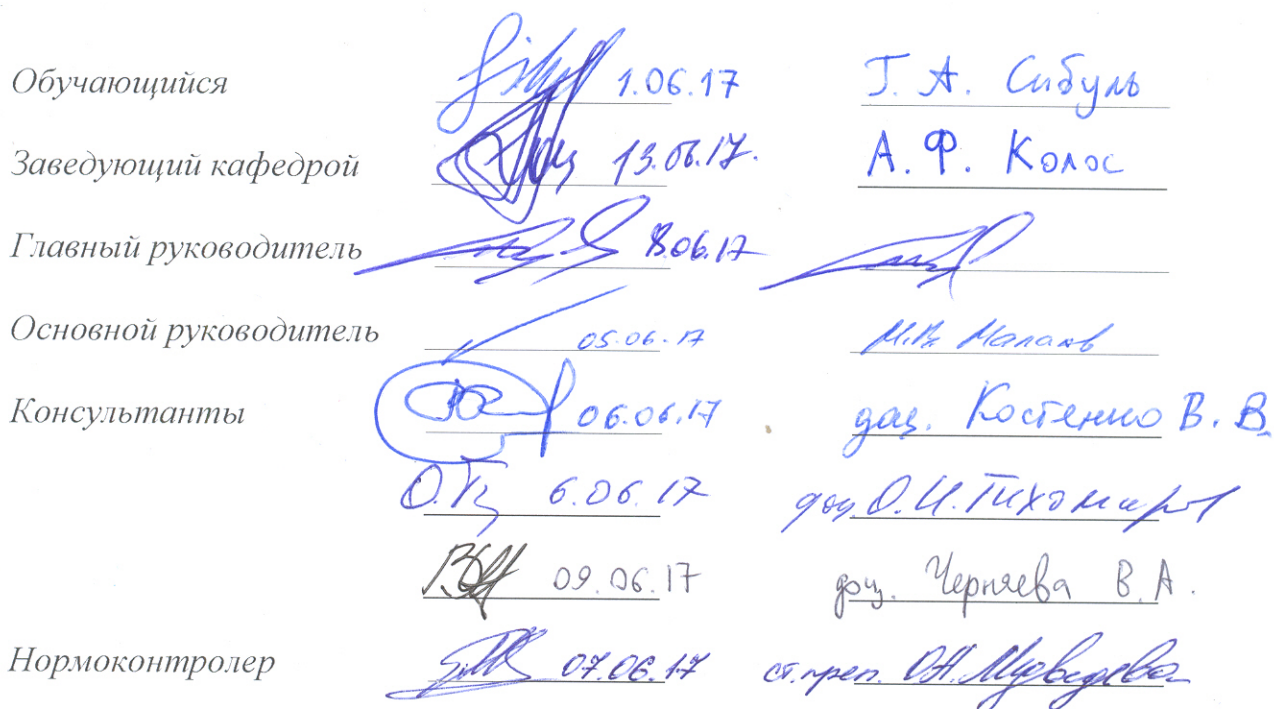 Обучающийся 1.06.17 Г. А. Сибуль
Заведующий кафедрой 13.06.17. А. Ф. Колос
Главный руководитель 8.06.17
Основной руководитель 05.06.17
Консультанты 06.06.17 доц. Костенко В. В.
6.06.17 доц. О.И. Тихомиров
09.06.17 доц. Черняева В.А.
Нормоконтролер 07.06.17 ст. преп. О.Н. Медведева